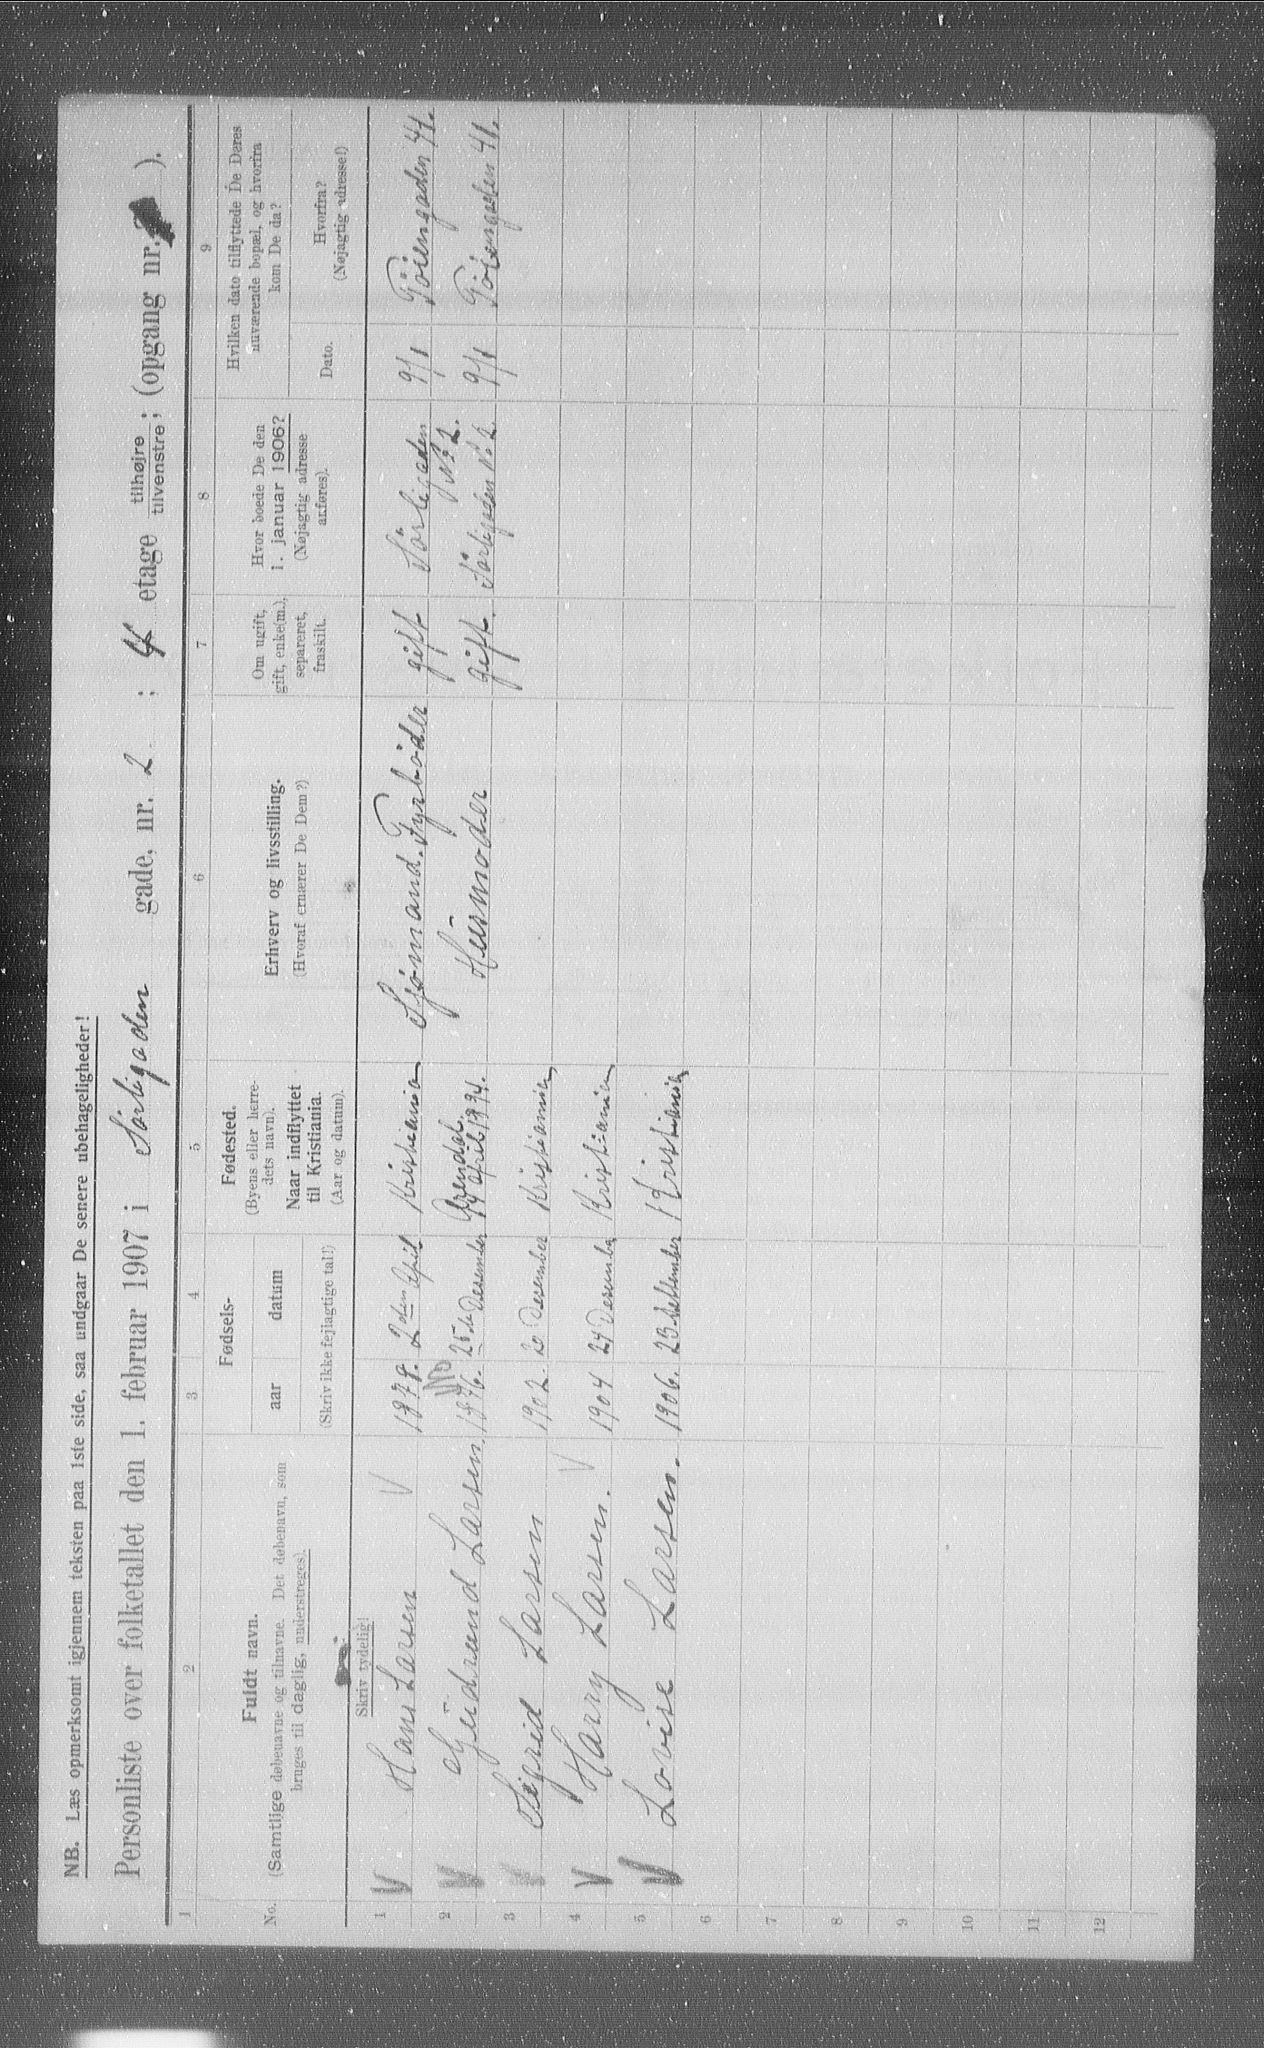 NB. Læs opmerksomt igjennem teksten paa 1ste side, saa undgaar De senere ubehageligheder!
Personliste over folketallet den 1. februar 1907 i Sørligaden gade, nr. 2 ; 4 etage tilhøjre / tilvenstre ; (opgang nr. ).
1 2 3 4 5 6 7 8 9
No.
Fuldt navn.
(Samtlige døbenavne og tilnavne. Det døbenavn, som
bruges til daglig, understreges).
Skriv tydelig!
Fødsels-
aar datum
(Skriv ikke fejlagtige tal!)
Fødested.
(Byens eller herre-
dets navn).
Naar indflyttet
til Kristiania.
(Aar og datum).
Erhverv og livsstilling.
(Hvoraf ernærer De Dem?)
Om ugift,
gift, enke(m.),
separeret,
fraskilt.
Hvor boede De den
1. januar 1906?
(Nøjagtig adresse
anføres).
Hvilken dato tilflyttede De Deres
nuværende bopæl, og hvorfra
kom De da?
Dato.
Hvorfra?
(Nøjagtig adresse!)
1 V Hans Larsen V 1878. 2den April Kristiania Sjømand. Fyrbøder gift Sørligaden No 2. 9/1 Töiengaden 41.
2 V Gudrund Larsen. 1876. 25de Desember April 1894. Husmoder gift. Sörligaden No 2. 9/1 Töiengaden 41.
3 V Sigrid Larsen 1902. 20 Desember Kristiania
4 V Harry Larsen. V 1904 24 Desember Kristiania
5 V Lovise Larsen. 1906. 23 September Kristiania
6
7
8
9
10
11
12